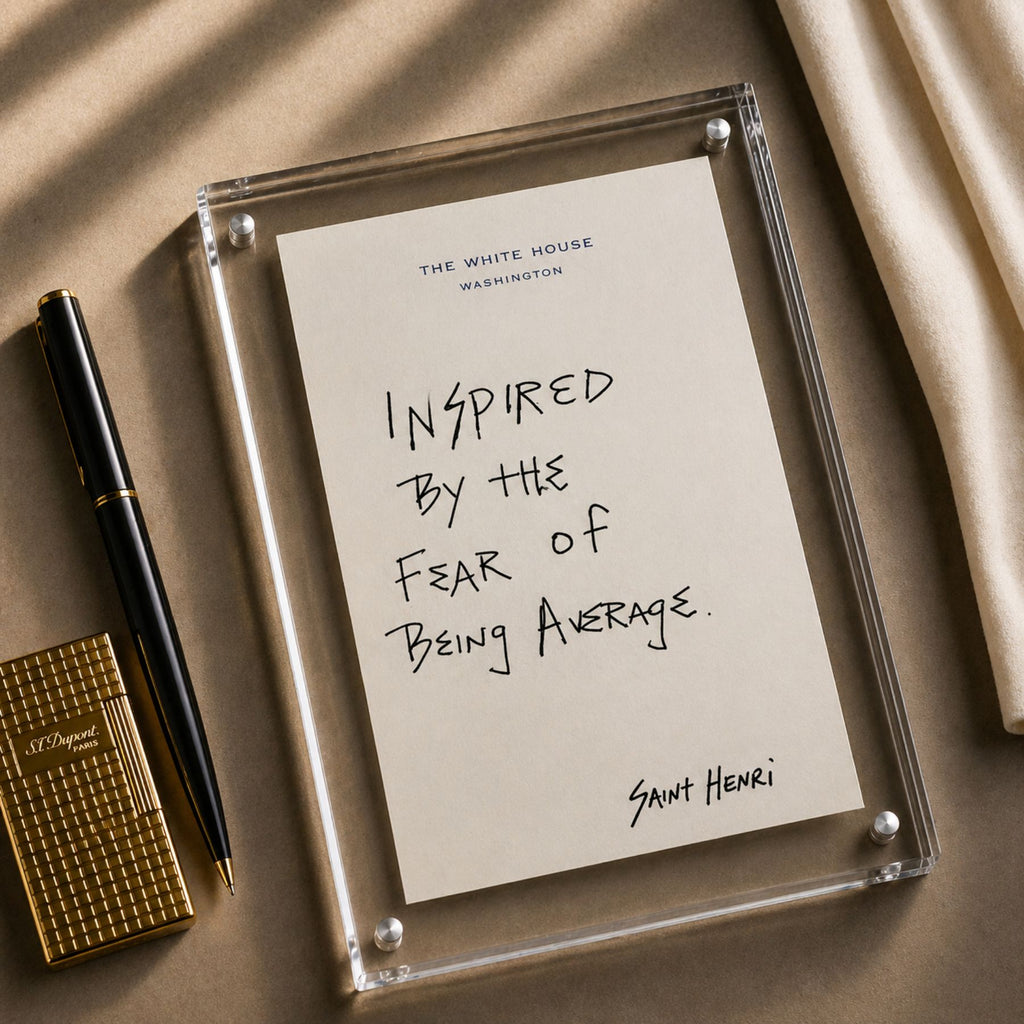 THE WHITE HOUSE
WASHINGTON
INSPIRED
BY THE
FEAR OF
BEING AVERAGE.
SAINT HENRI
S.T. Dupont.
PARIS